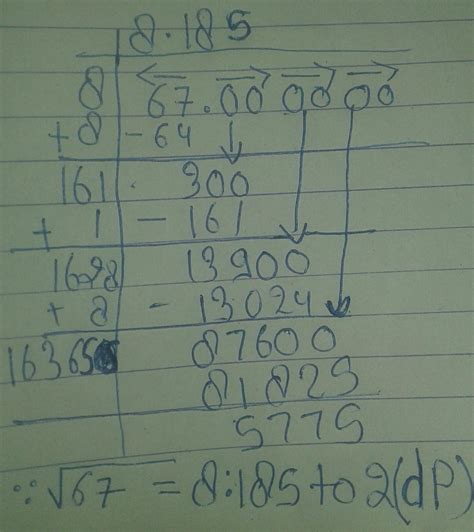 8.185
8 67.00 00 00
+8 -64
161 300
+ 1 - 161
1628 13900
+ 8 - 13024
16365 87600
81825
5775
∵ √67 = 8.185 to 2(dP)